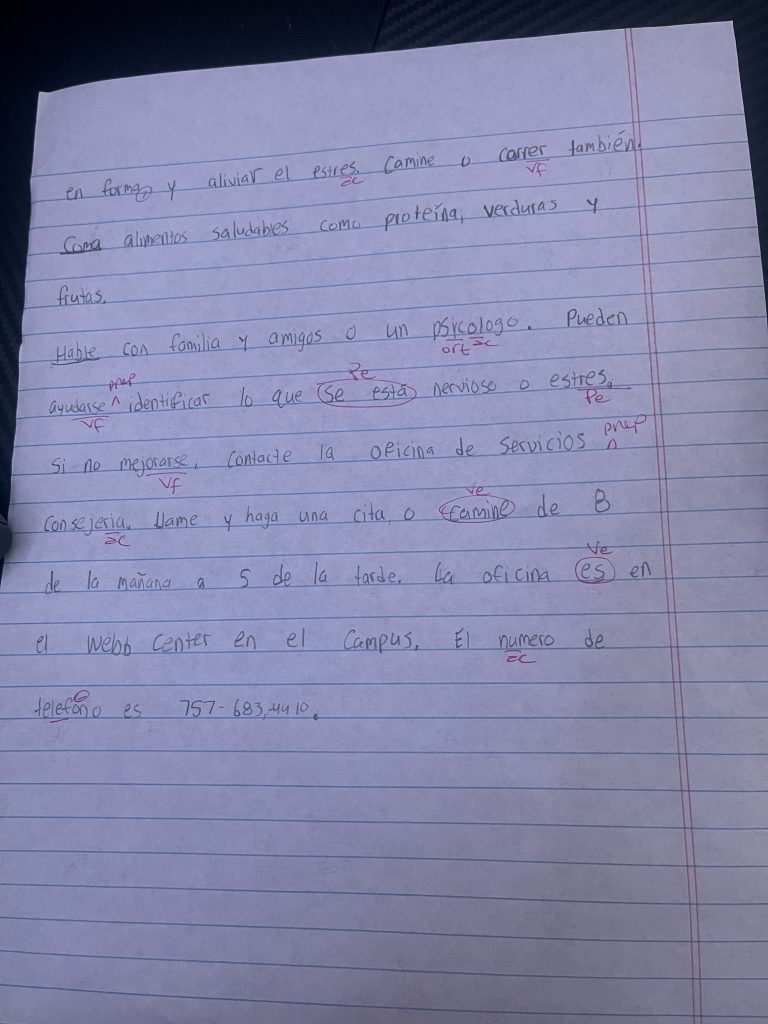 en forma y aliviar el estres. Camine o correr también.
ac vf
Coma alimentos saludables como proteína, verduras y
frutas.
Hable con familia y amigos o un psicologo. Pueden
ort ac
prep Pe
ayudarse ^ identificar lo que se está nervioso o estres.
vf Pe
prep
Si no mejorarse, contacte la oficina de servicios ^
vf
ve
consejeria. Llame y haga una cita, o camine de 8
ac
ve
de la mañana a 5 de la tarde. La oficina es en
el Webb Center en el campus. El numero de
ac
telefono es 757-683-4410.